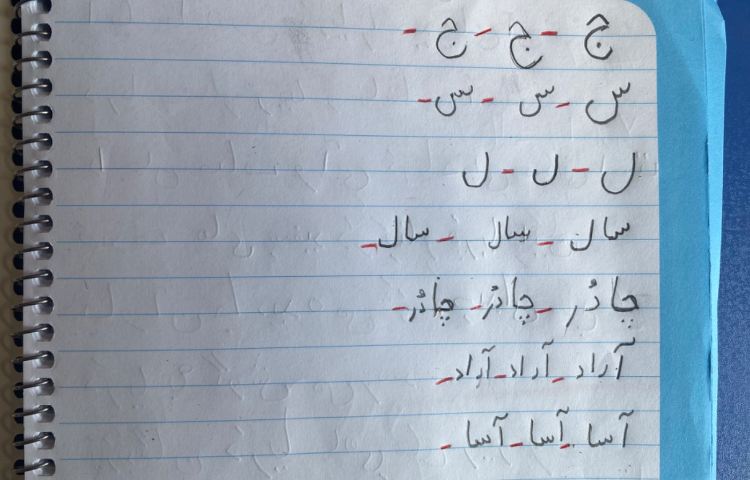 ج - ج - ج -
س - س - س -
ل - ل - ل
سال - سال - سال -
چادُر - چادُر - چادُر -
آراد - آراد - آراد -
آسا - آسا - آسا -